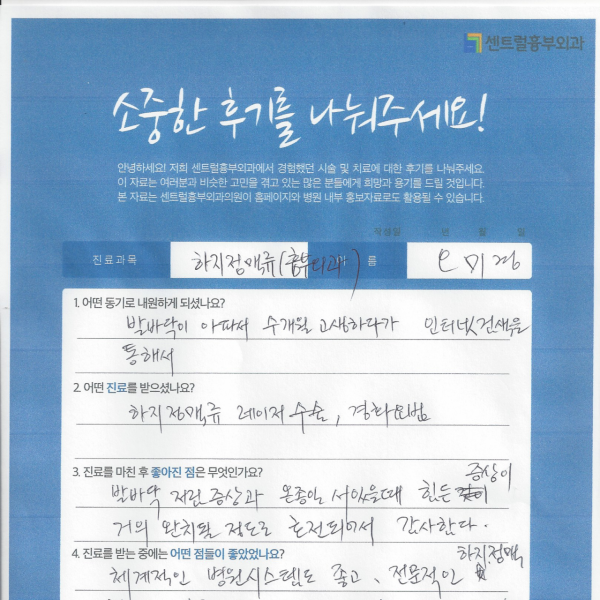 센트럴흉부외과
소중한 후기를 나눠주세요!
안녕하세요! 저희 센트럴흉부외과에서 경험했던 시술 및 치료에 대한 후기를 나눠주세요.
이 자료는 여러분과 비슷한 고민을 겪고 있는 많은 분들에게 희망과 용기를 드릴 것입니다.
본 자료는 센트럴흉부외과의원이 홈페이지와 병원 내부 홍보자료로도 활용될 수 있습니다.
작성일 년 월 일
진료과목 하지정맥류(흉부외과) 이 름 오미경
1. 어떤 동기로 내원하게 되셨나요?
발바닥이 아파서 수개월 고생하다가 인터넷검색을
통해서
2. 어떤 진료를 받으셨나요?
하지정맥류 레이저수술, 경화요법
3. 진료를 마친 후 좋아진 점은 무엇인가요?
발바닥 저린증상과 온종일 서있을때 힘든 증상이
거의 완치될 정도로 호전되어서 감사합니다.
4. 진료를 받는 중에는 어떤 점들이 좋았었나요?
체계적인 병원시스템도 좋고, 전문적인 하지정맥